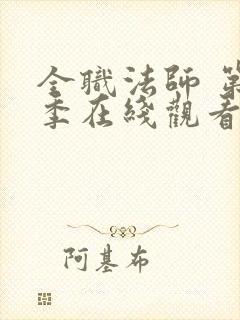 全職法師 第
季在綫觀看
阿基布